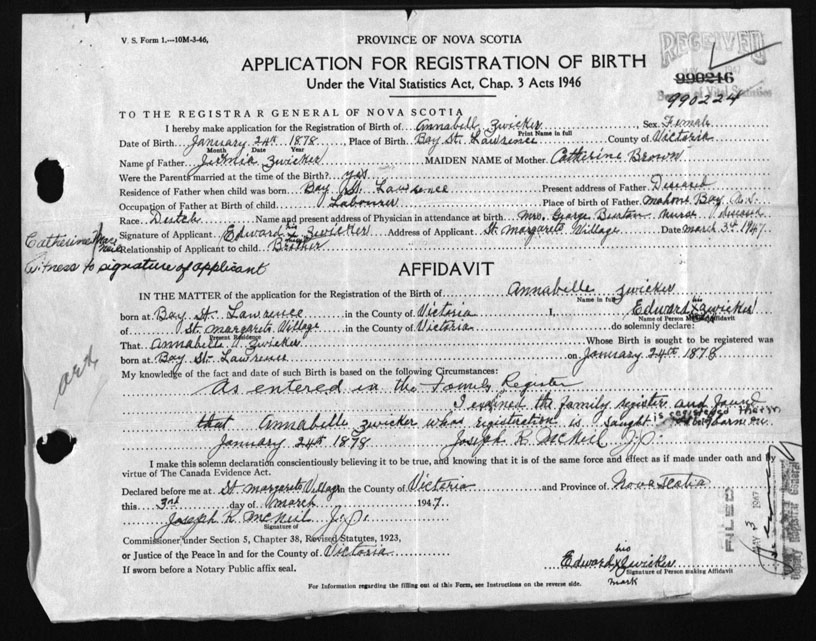 V. S. Form 1.—10M-3-46.
PROVINCE OF NOVA SCOTIA
RECEIVED
APPLICATION FOR REGISTRATION OF BIRTH
Under the Vital Statistics Act, Chap. 3 Acts 1946
990216
of Vital Statistics
990224
TO THE REGISTRAR GENERAL OF NOVA SCOTIA
I hereby make application for the Registration of Birth of Annabell Zwicker Sex Female
Print Name in full
Date of Birth January 24th 1878, Place of Birth Bay St. Lawrence County of Victoria
Month Date Year
Name of Father Zwicker MAIDEN NAME of Mother Catherine Brown
Were the Parents married at the time of the Birth? yes
Residence of Father when child was born Bay St. Lawrence Present address of Father Deceased
Occupation of Father at Birth of child Labourer Place of birth of Father Mahone Bay N.S.
Race Dutch Name and present address of Physician in attendance at birth Mrs. George Nurse Deceased
Signature of Applicant Edward his X Zwicker Address of Applicant St. Margarets Village Date March 3rd 1947
Relationship of Applicant to child Brother
Catherine
Witness to signature of applicant
AFFIDAVIT
IN THE MATTER of the application for the Registration of Birth of Annabelle Zwicker
Name in full
born at Bay St. Lawrence in the County of Victoria I, Edward his X Zwicker
Name of Person Making Affidavit
of St. Margarets Village in the County of Victoria do solemnly declare:
Present Residence
That Annabelle Zwicker Whose Birth is sought to be registered was
born at Bay St. Lawrence on January 24th 1878
My knowledge of the fact and date of such Birth is based on the following Circumstances:
As entered in the Family Register
I exained the family register and found
that Annabelle Zwicker who's registration is saught is registered born on
January 24th 1878 Joseph R. McNeil J.P.
I make this solemn declaration conscientiously believing it to be true, and knowing that it is of the same force and effect as if made under oath and by
virtue of The Canada Evidence Act.
Declared before me at St. Margarets Village in the County of Victoria and Province of Nova Scotia
this 3rd day of March 1947
Joseph R. McNeil J.P.
Signature of
Commissioner under Section 5, Chapter 38, Revised Statutes, 1923,
or Justice of the Peace In and for the County of Victoria
If sworn before a Notary Public affix seal.
Edward his X Zwicker
Signature of Person making Affidavit
mark
For Information regarding the filling out of this Form, see Instructions on the reverse side.
FILED
3 1947
Deputy Registrar General